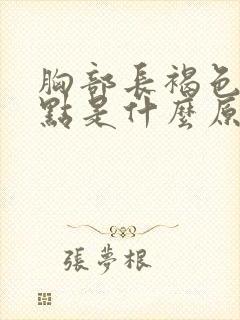 胸部長褐色
點是什麼原
張夢根